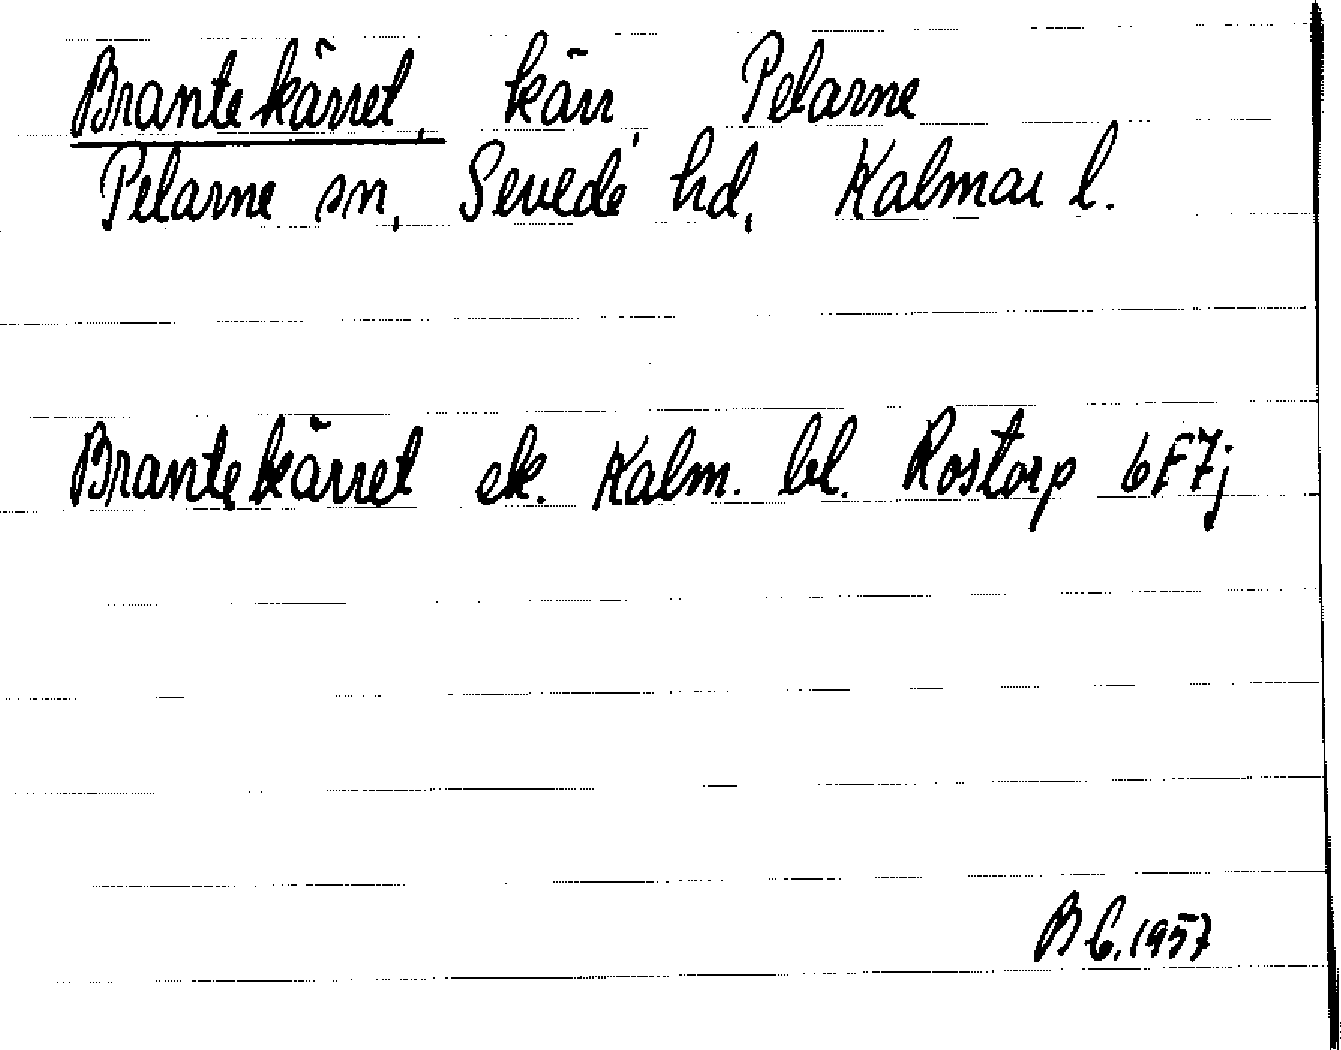 Brantekärret, kärr, Pelarne
Pelarne sn, Sevede hd, Kalmar l.
Brantekärret ek. Kalm. bl. Rostorp 6F7j
B G. 1957